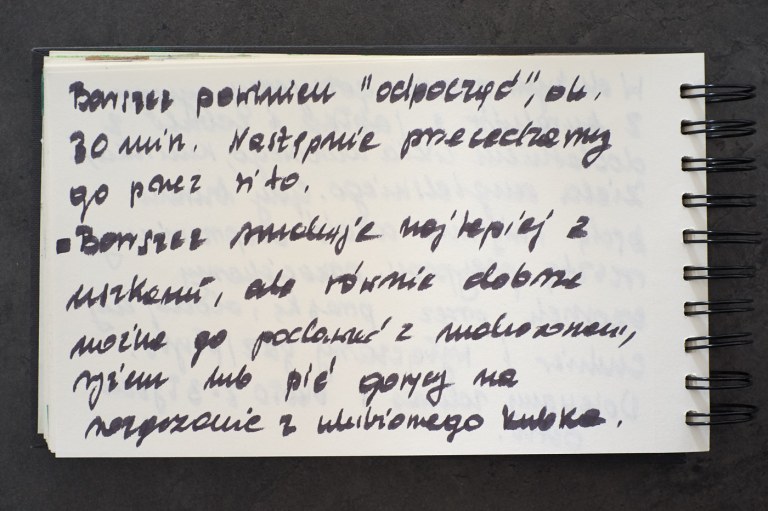 Barszcz powinien "odpocząć", ok.
30 min. Następnie przecedzamy
go przez sito.
▪Barszcz smakuje najlepiej z
uszkami, ale równie dobrze
można go podawać z makaronem,
ryżem lub pić gorący na
rozgrzanie z ulubionego kubka.